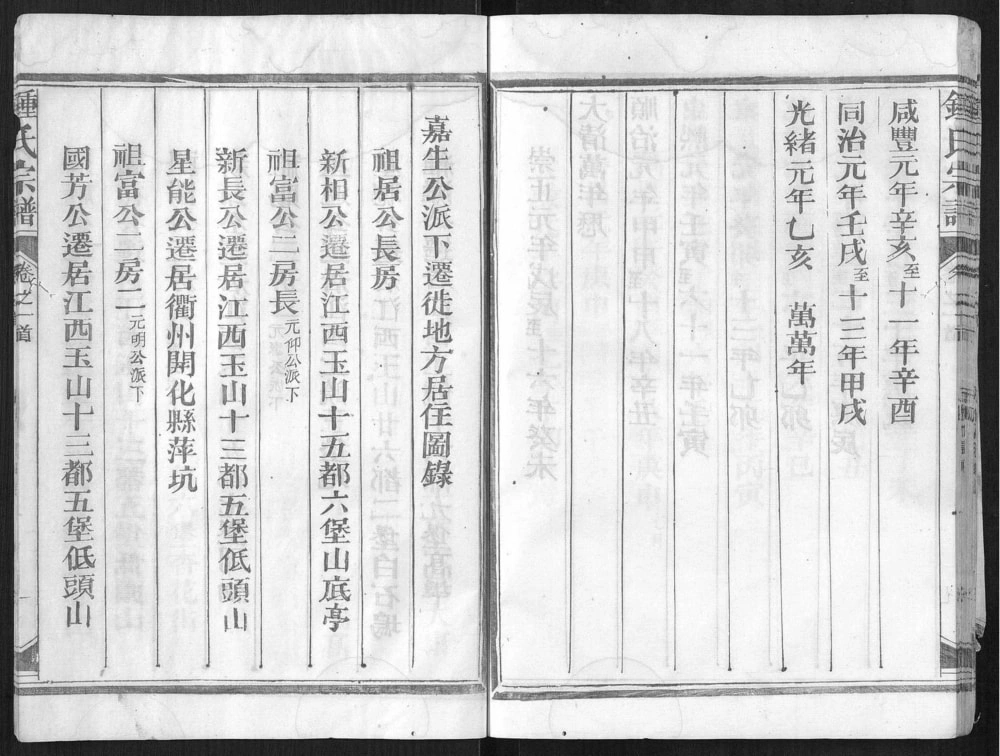 鍾氏宗譜
咸豐元年辛亥至十一年辛酉
同治元年壬戌至十三年甲戌
光緒元年乙亥　萬萬年
嘉生公派下遷徙地方居住圖錄
祖居公長房
新相公遷居江西玉山十五都六堡山底亭
祖富公二房長元仰公派下
新長公遷居江西玉山十三都五堡低頭山
星能公遷居衢州開化縣萍坑
祖富公二房二元明公派下
國芳公遷居江西玉山十三都五堡低頭山
鍾氏宗譜
卷之一首